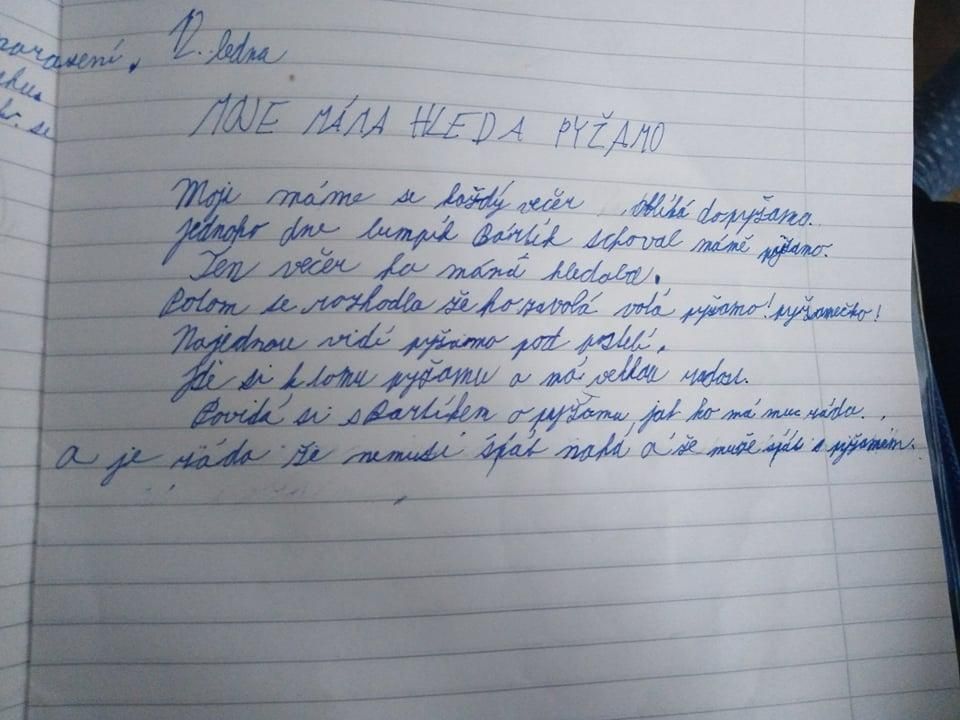 narození.
12. ledna
MOJE MÁMA HLEDA PYŽAMO
Moje máme se každý večer obliká dopyžama.
Jednoho dne lumpík Bártík schoval mámě pyžamo.
Ten večer ho máma hledala.
Potom se rozhodla že ho zavolá volá pyžamo! pyžamečko!
Najednou vidí pyžamo pod postelí.
Jde si k tomu pyžamu a má velkou radost.
Povidá si s Bartíkem o pyžamu jak ho má moc ráda.
a je ráda že nemusí spát nahá a že muže spát s pyžamem.